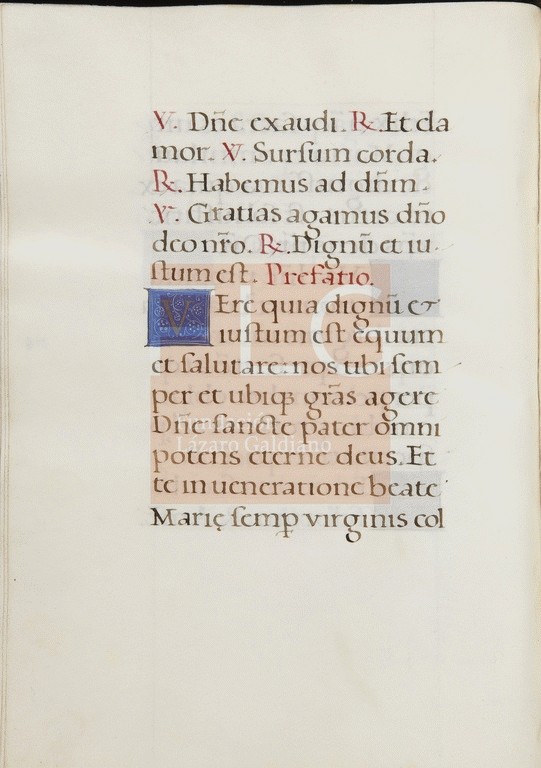 V. Dñe exaudi. R. Et cla
mor. V. Surſum corda.
R. Habemus ad dñm.
V. Gratias agamus dño
deo nr̃o. R. Dignũ et iu-
ſtum eſt. Prefatio.
VEre quia dignũ &
iuſtum eſt equum
et ſalutare: nos tibi ſem
per et ubiqꝫ gr̃as agere
Dñe ſancte pater omni
potens eterne deus. Et
te in ueneratione beate
Marię ſemꝑ virginis col
Fundación
Lázaro Galdiano